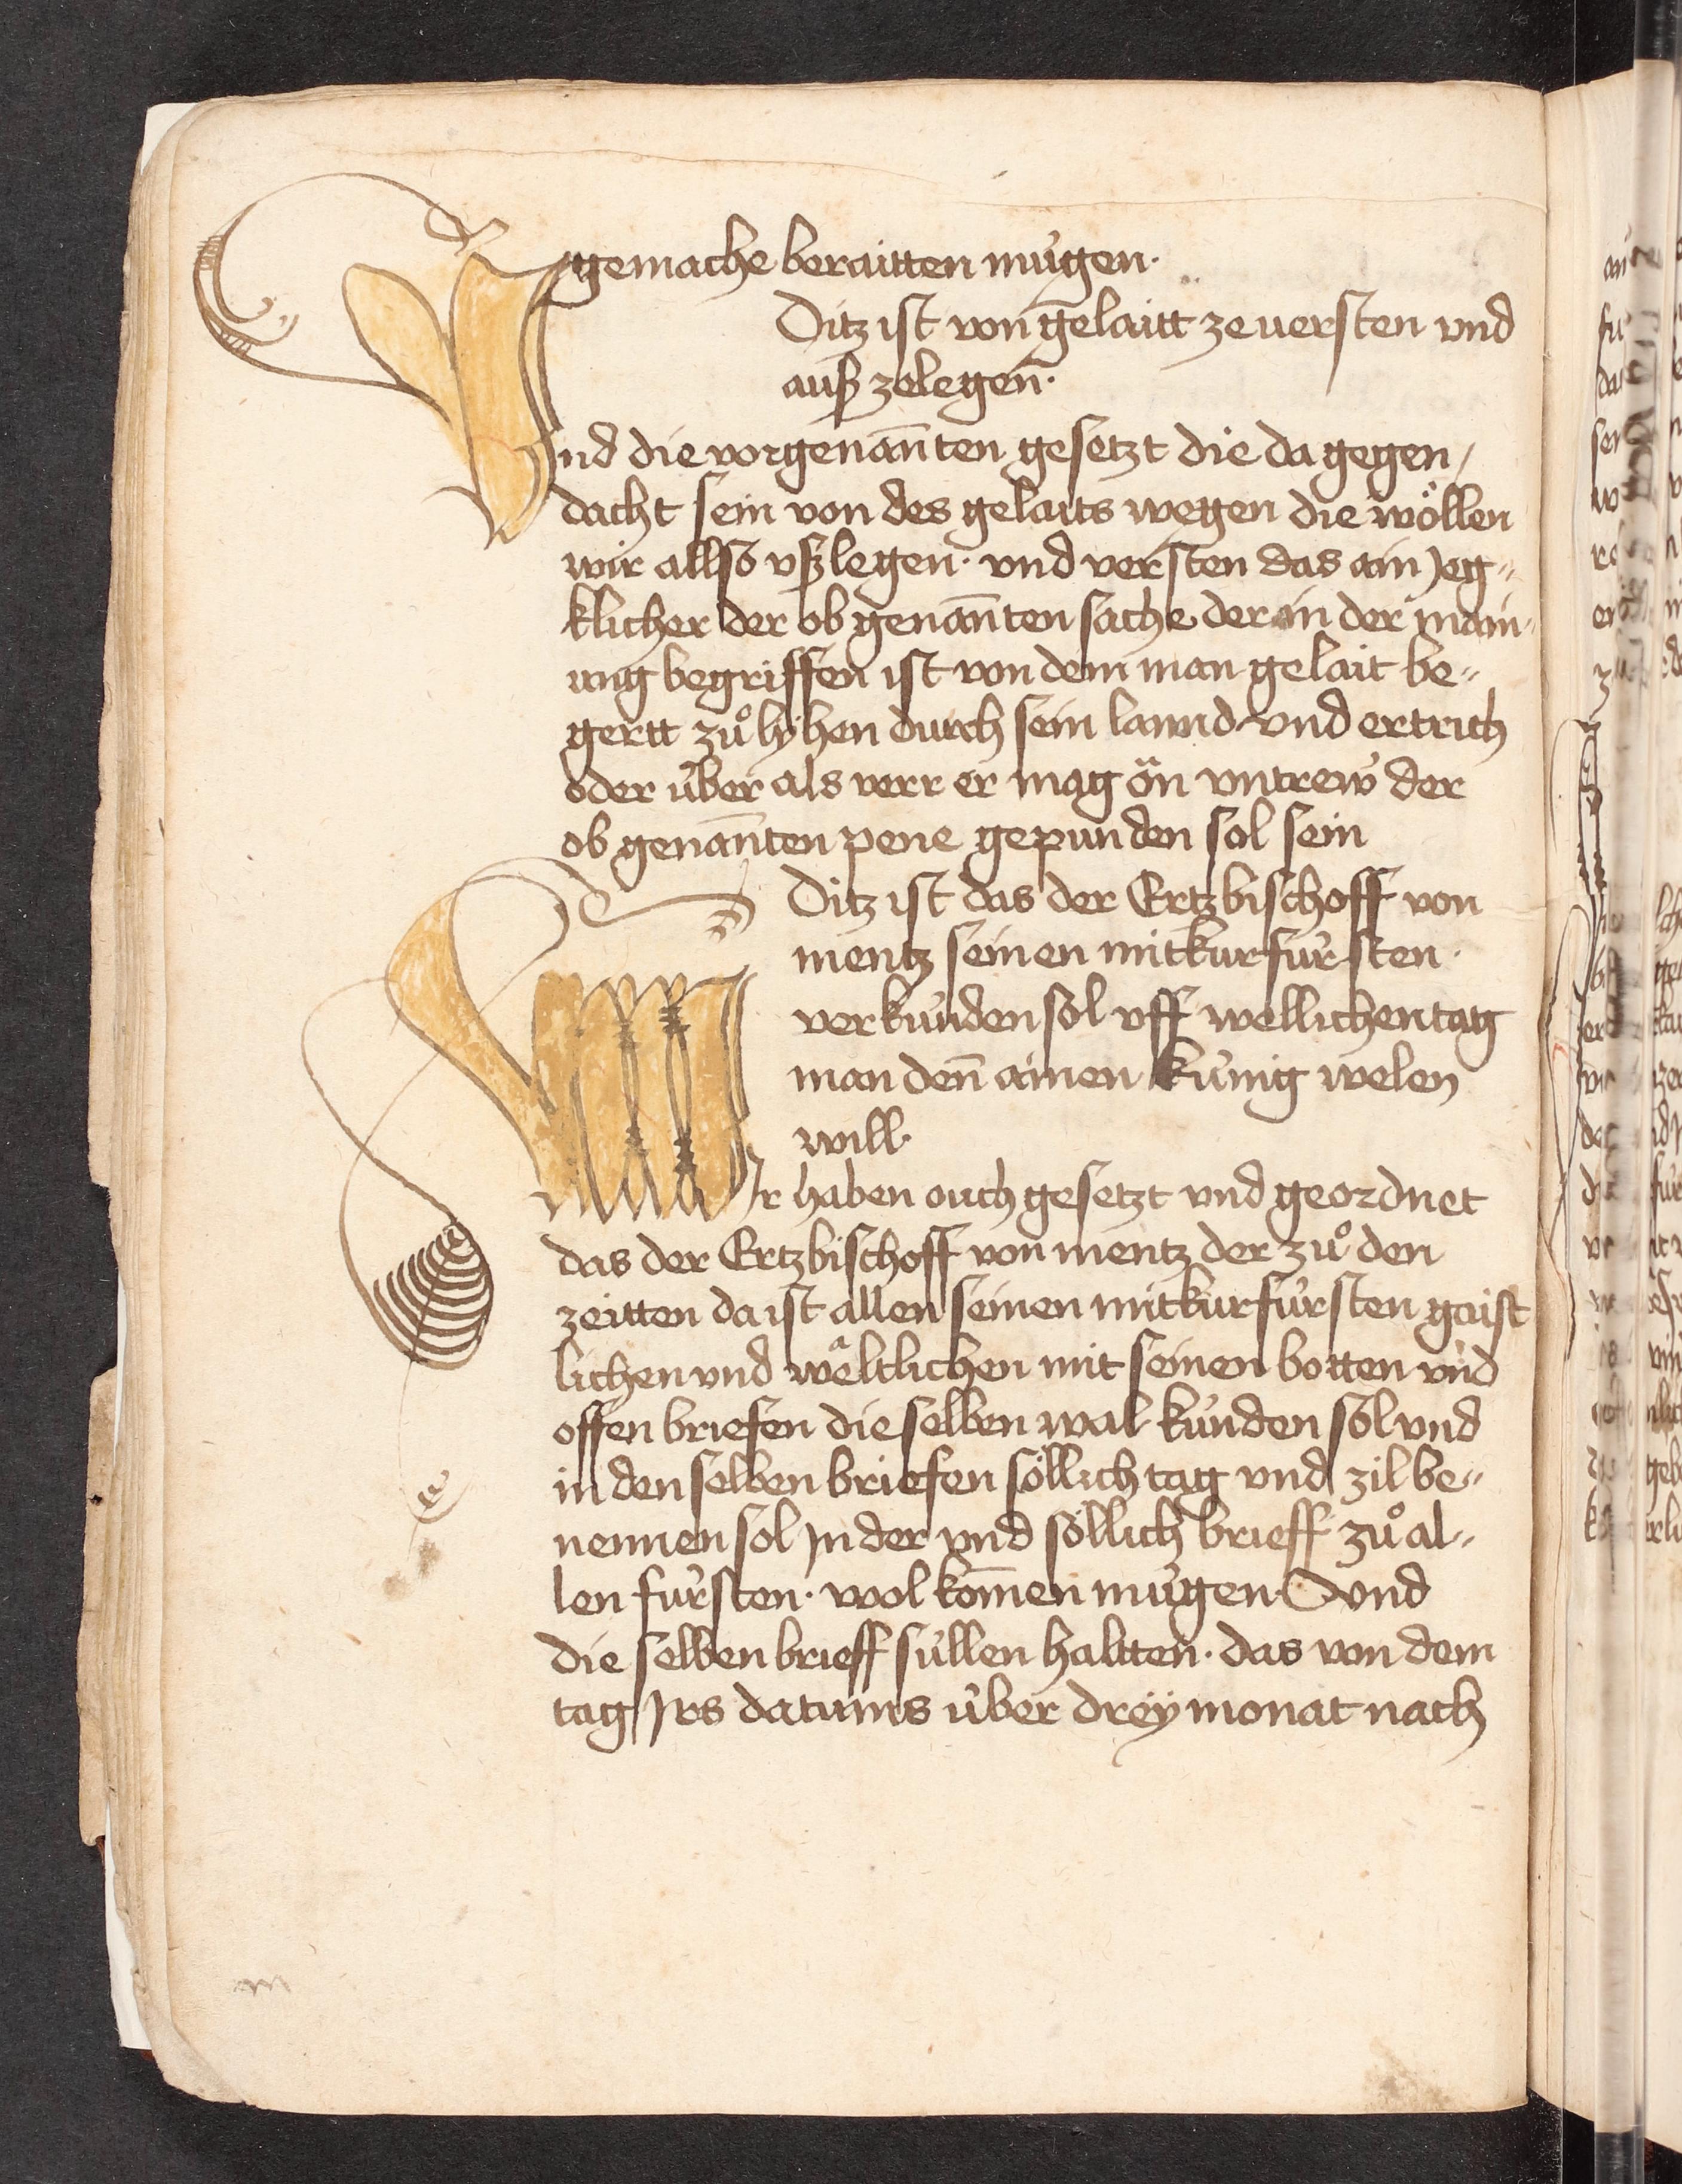 gemache beraitten mu̇gen·
Ditz ist von gelaitt ze uersten vnd
auß ze legen̄·
Vnd die vorgenan̄ten gesetzt die da gegen /
dacht sein von des gelaits wegen die wöllen
wir allso vßlegen· vnd versten das ain Jeg〃
klicher der ob genan̄ten sache der in der main
ung begriffen ist von dem man gelait be〃
gertt zuͦ lÿhen durch sein lannd vnd ertrich
oder u̇ber als verr er mag ön vntrew der
ob genan̄ten pene gepunden sol sein
Ditz ist das der Ertzbischoff von
mentz seinen mitkurfu̇rsten·
verku̇nden sol vff wellichen tag
man den̄ ainen ku̇nig welen
will·
WIr haben ouch gesetzt vnd geordnet
das der Ertzbischoff von mentz der zuͦ den
zeitten da ist allen seinen mitkurfu̇rsten gaist
lichen vnd wältlichen mit seinen botten vnd
offen briefen die selben wal ku̇nden sol vnd
in den selben briefen söllich tag vnd zil be〃
nennen sol In der vnd söllich brieff zuͦ al〃
len fu̇rsten· wol kom̄en mu̇gen· Vnd
die selben brieff su̇llen haltten· das von dem
tag Irs datums u̇ber dreÿ monat nach